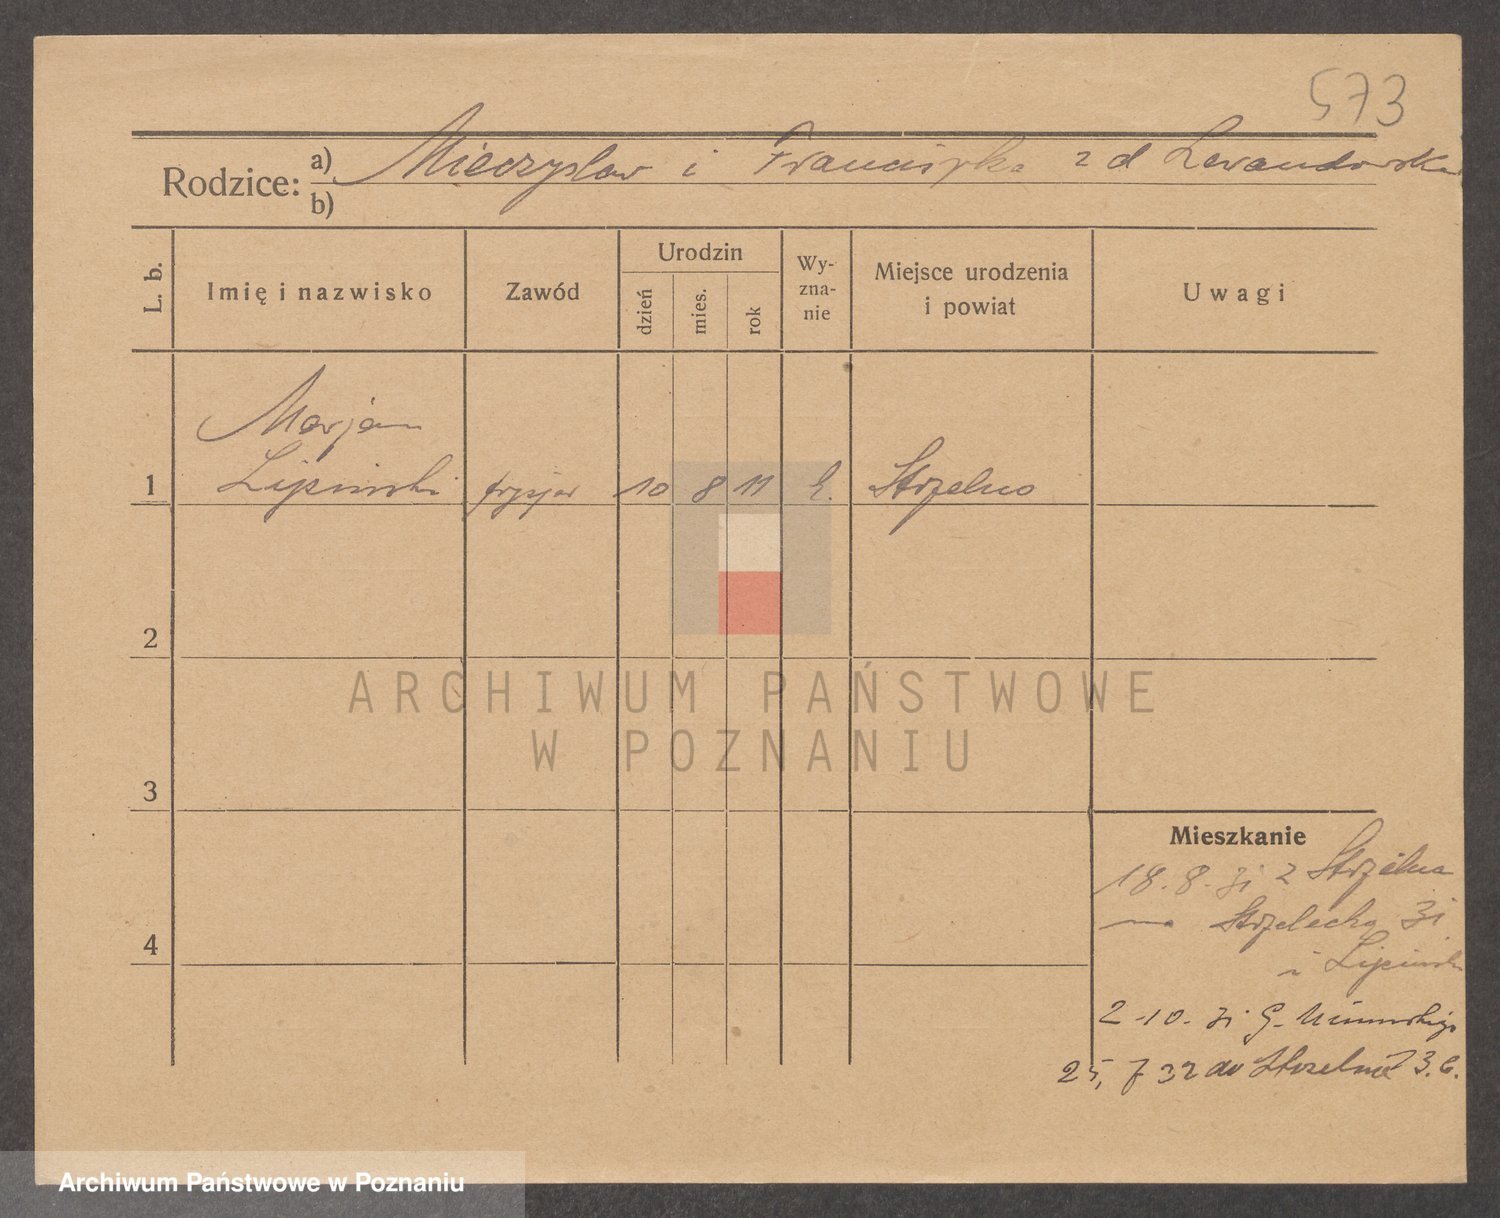 573
Rodzice: a) Mieczysław i Franciszka z d Lewandowska
b)
L. b.
Imię i nazwisko
Zawód
Urodzin
dzień
mies.
rok
Wy-
zna-
nie
Miejsce urodzenia
i powiat
Uwagi
Marjan
1 Lipiński fryzjer 10 8 11 k. Strzelno
2
3
4
ARCHIWUM PAŃSTWOWE
W POZNANIU
Mieszkanie
18. 8. 31 z Strzelna
na Strzelecka 31
i Lipiński
2-10-31 G.
25, 7 32 do Strzelna
Archiwum Państwowe w Poznaniu